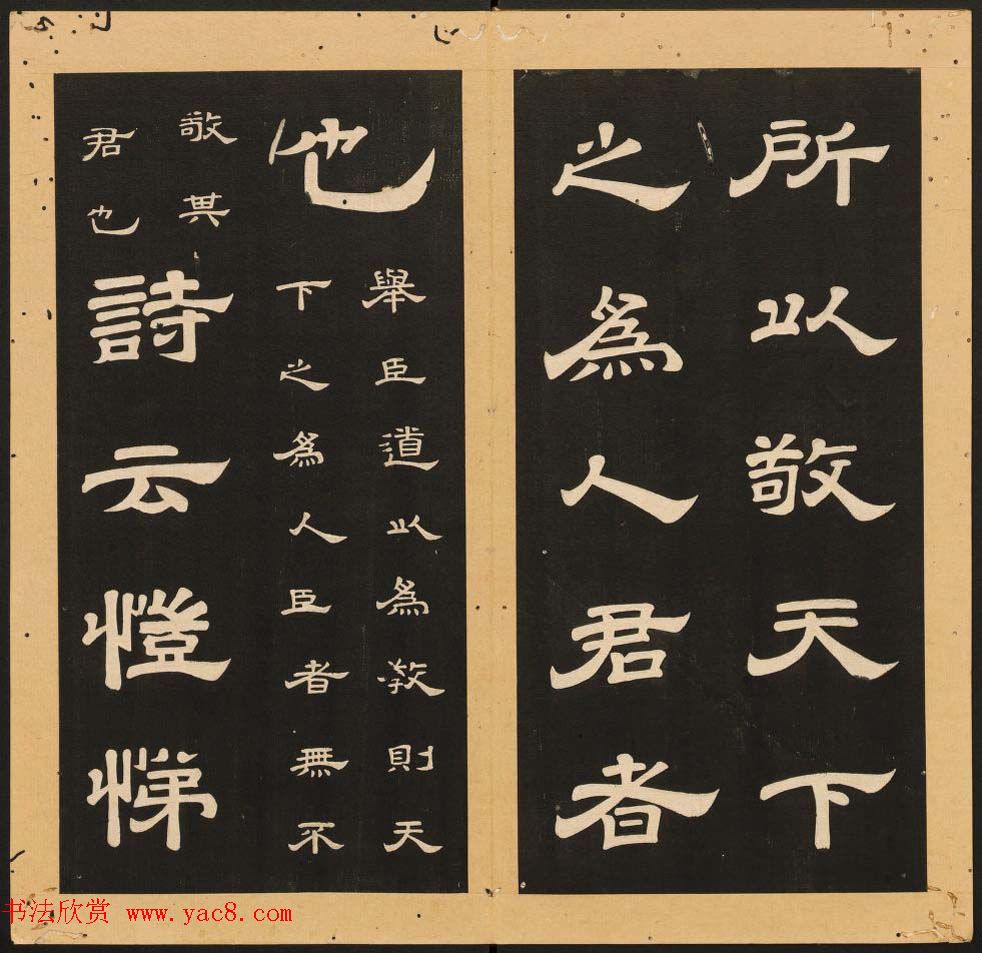 所以敬天下
之爲人君者
也
舉臣道以爲教則天
下之爲人臣者無不
敬其
君也
詩云愷悌
书法欣赏 www.yac8.com